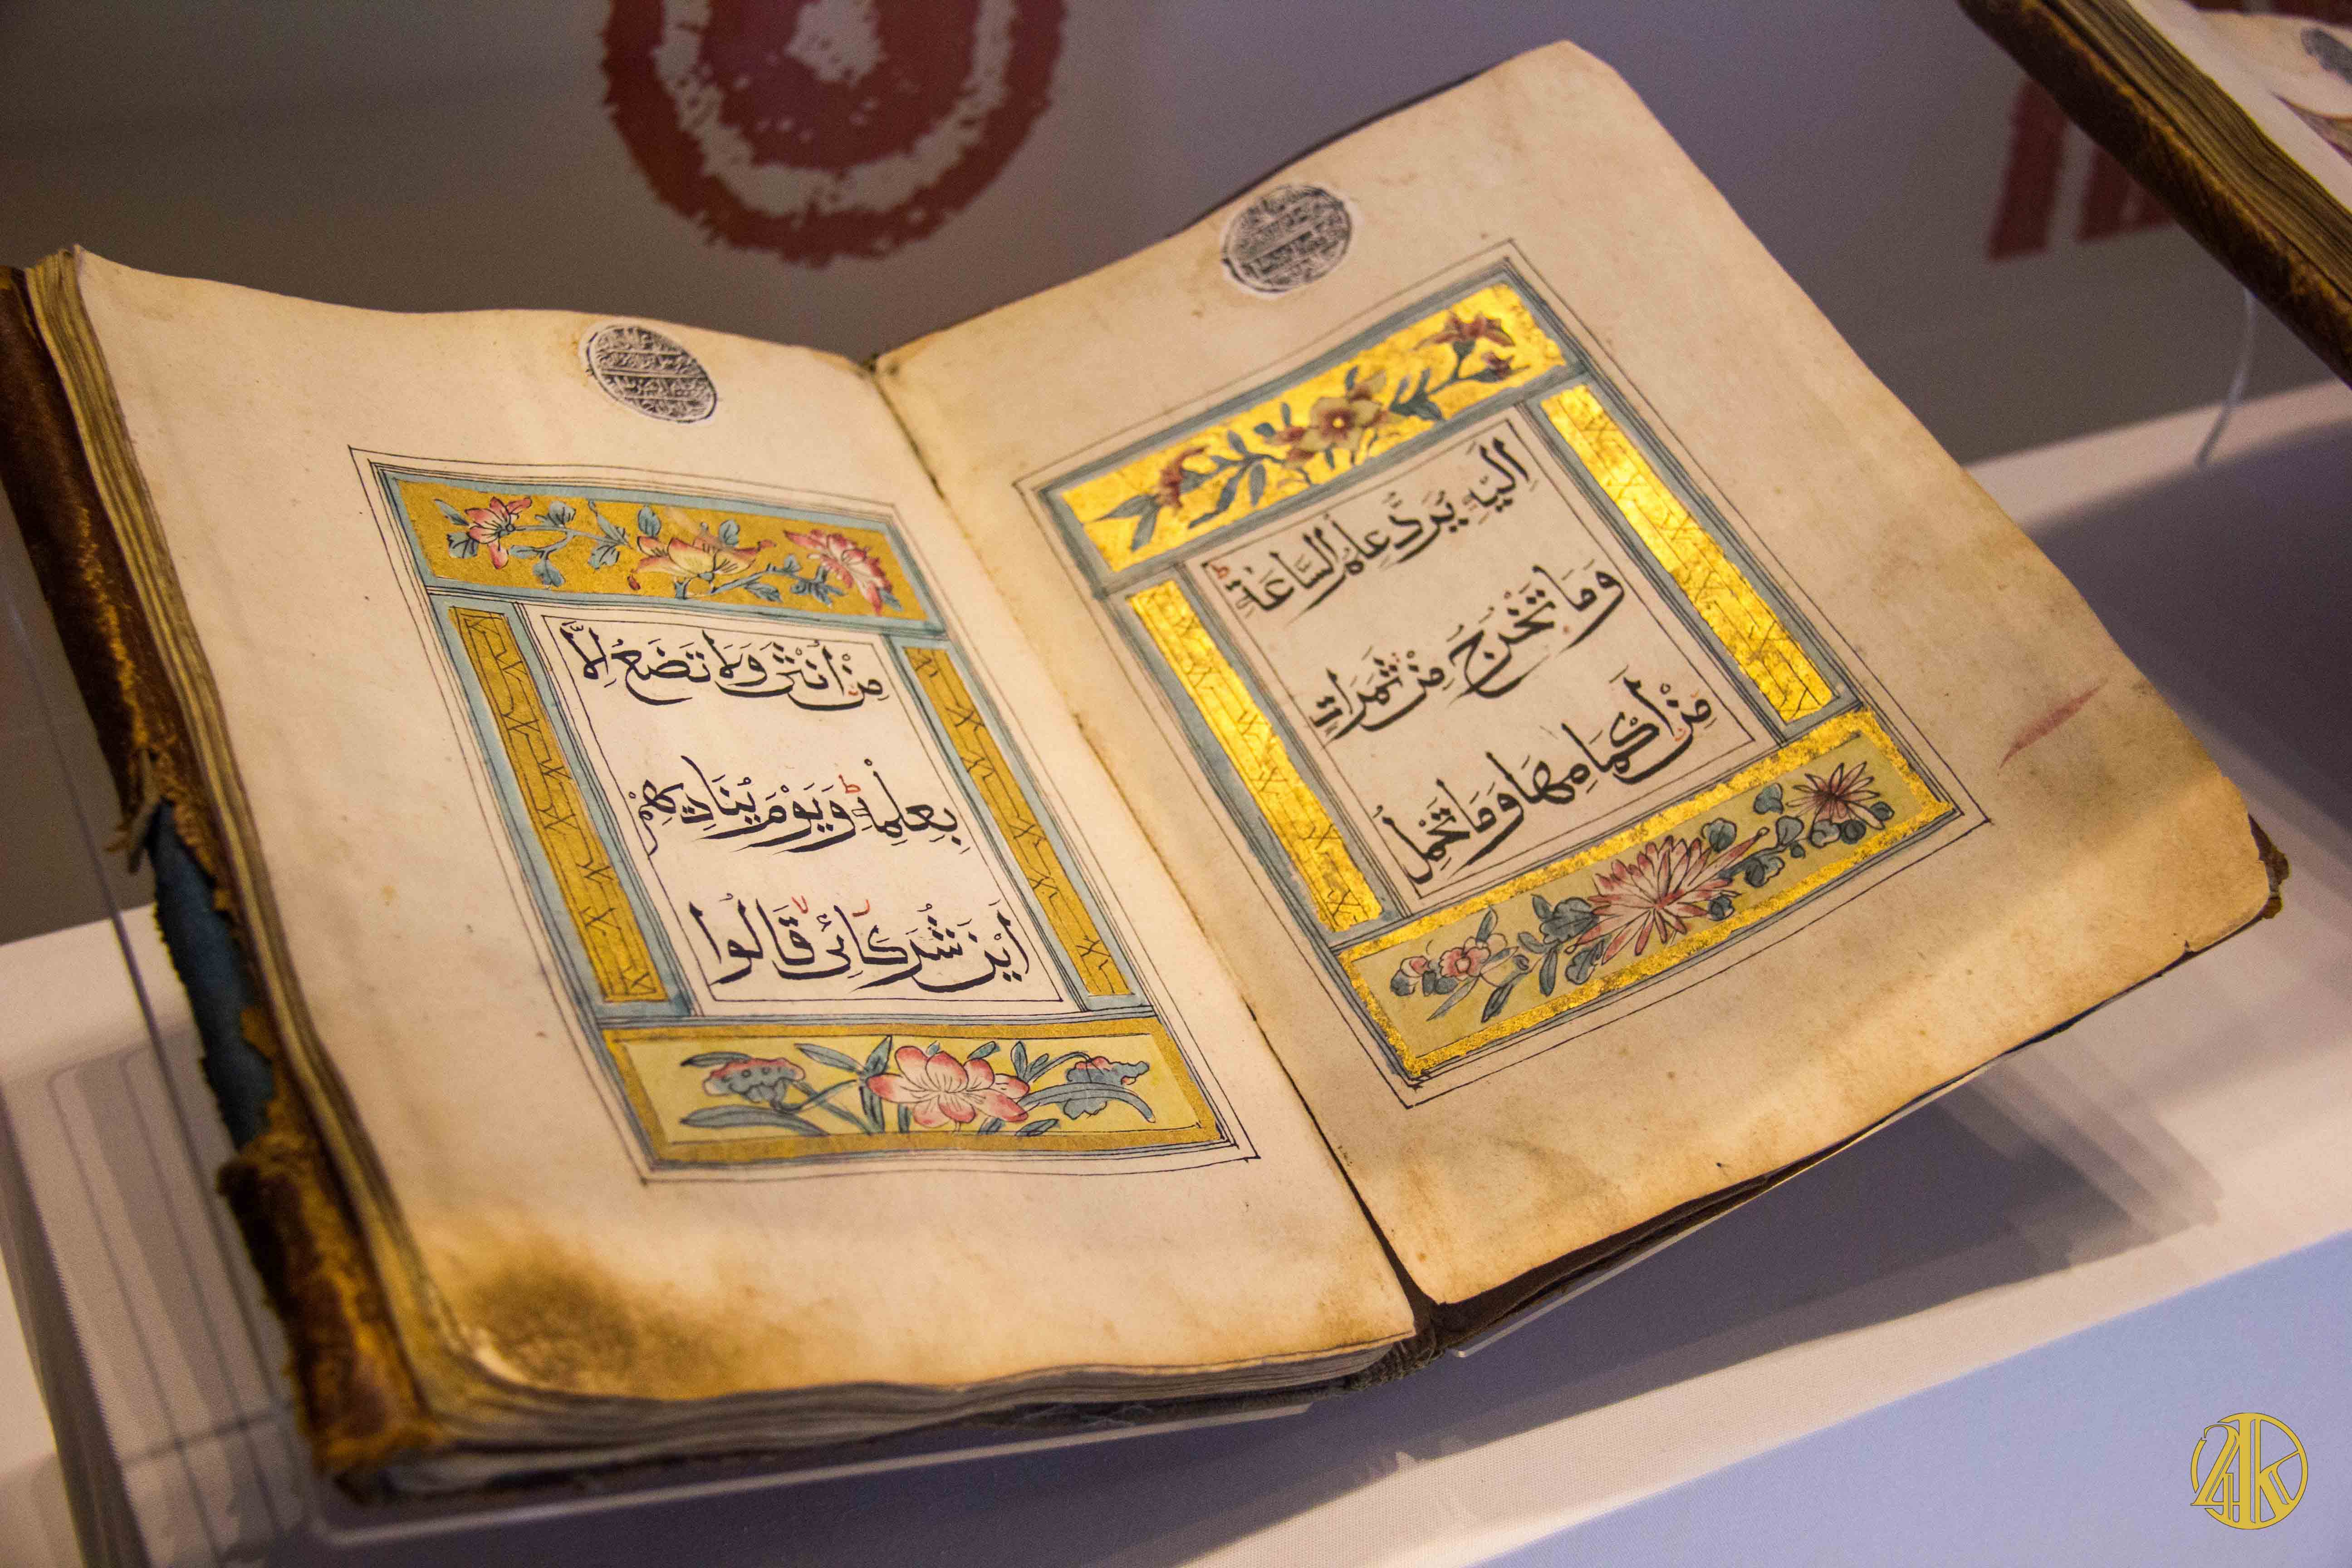 اِلَيْهِ يُرَدُّ عِلْمُ السَّاعَةِ ط
وَمَا تَخْرُجُ مِنْ ثَمَرَاتٍ
مِنْ اَكْمَامِهَا وَمَا تَحْمِلُ
مِنْ اُنْثٰى وَلَا تَضَعُ اِلَّا
بِعِلْمِهٖ ط وَيَوْمَ يُنَادِيهِمْ
اَيْنَ شُرَكَائِى قَالُوا
24K